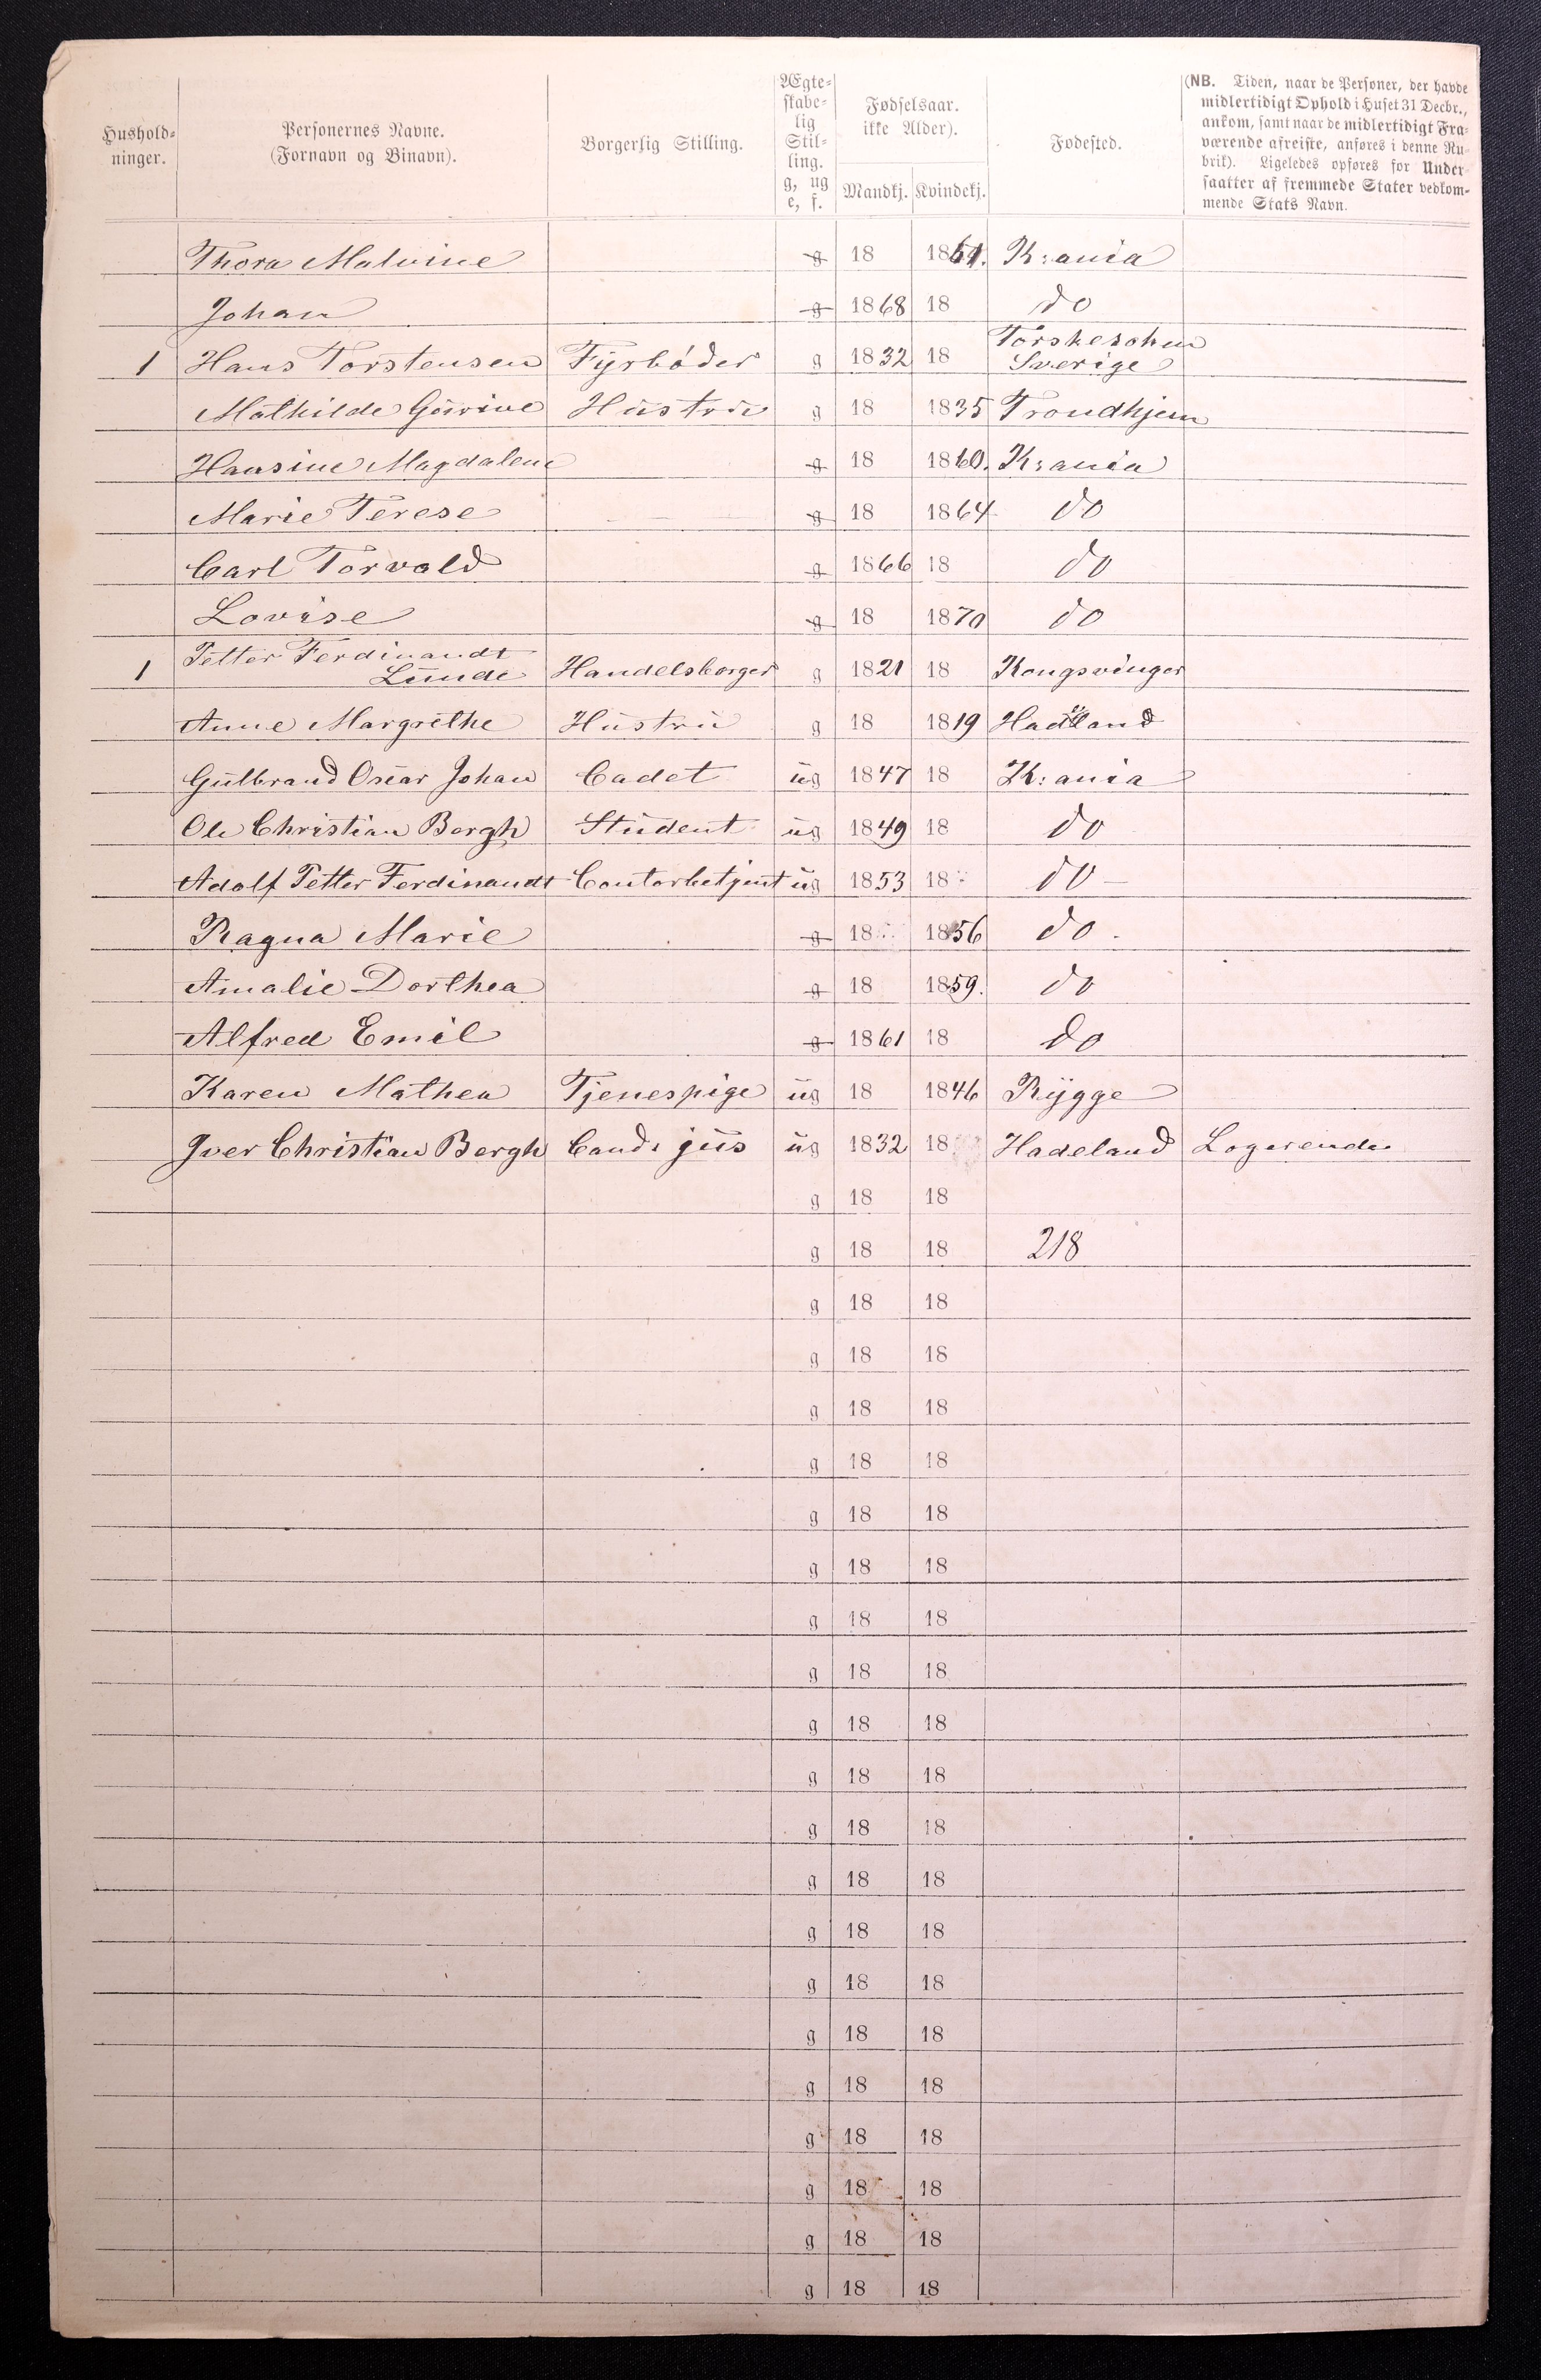 Hushold-
ninger.
Personernes Navne.
(Fornavn og Binavn).
Borgerlig Stilling.
Ægte-
skabe-
lig
Stil-
ling.
g, ug
e, f.
Fødselsaar.
(ikke Alder).
Mandkj. Kvindekj.
Fødested.
(NB. Tiden, naar de Personer, der havde
midlertidigt Ophold i Huset 31 Decbr.,
ankom, samt naar de midlertidigt Fra-
værende afreiste, anføres i denne Ru-
brik). Ligeledes opføres for Under-
saatter af fremmede Stater vedkom-
mende Stats Navn.
Thora Malvine g 18 1861. K:ania
Johan g 1868 18 do
1 Hans Torstensen Fyrbøder g 1832 18 Sverige
Mathilde g 18 1835 Trondhjem
Hustru
Hansine Magdalene g 18 1860. K:ania
Marie Terese g 18 1864 do
Carl Torvald g 1866 18 do
Lovise g 18 1870 do
Petter Ferdinandt
1 Lunde Handelsborger g 1821 18 Kongsvinger
Anne Margrethe Hustru g 18 1819 Hadeland
Gulbrand Oscar Johan Cadet ug 1847 18 K:ania
Ole Christian Bergh Student ug 1849 18 do
Adolf Petter Ferdinandt Contorbetjent ug 1853 18 do
Ragna Marie g 18 1856 do.
Amalie Dorthea g 18 1859. do
Alfred Emil g 1861 18 do
Karen Mathea Tjenespige ug 18 1846 Rygge
Iver Christian Bergh Cand: jus ug 1832 18 Hadeland Logerende
g 18 18
g 18 18 218
g 18 18
g 18 18
g 18 18
g 18 18
g 18 18
g 18 18
g 18 18
g 18 18
g 18 18
g 18 18
g 18 18
g 18 18
g 18 18
g 18 18
g 18 18
g 18 18
g 18 18
g 18 18
g 18 18
g 18 18